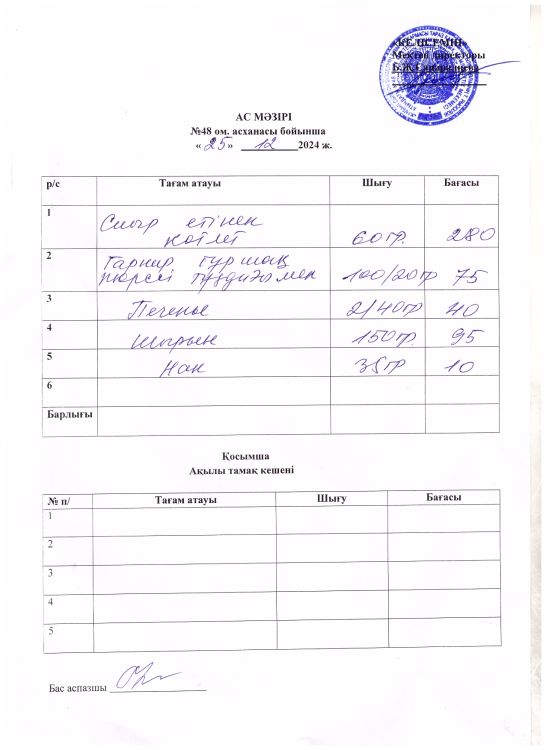 «КЕЛІСЕМІН»
Мектеп директоры
АС МӘЗІРІ
№48 ом. асханасы бойынша
« 25 » 12 2024 ж.
р/с Тағам атауы Шығу Бағасы
1 Сиыр етінен
котлет 60 гр. 280
2 Гарнир бұршақ
пюресі тұздығымен 100/20 гр 75
3 Печенье 2/40 гр 40
4 Шырын 150 гр. 95
5 Нан 35 гр 10
6
Барлығы
Қосымша
Ақылы тамақ кешені
№ п/ Тағам атауы Шығу Бағасы
1
2
3
4
5
Бас аспазшы